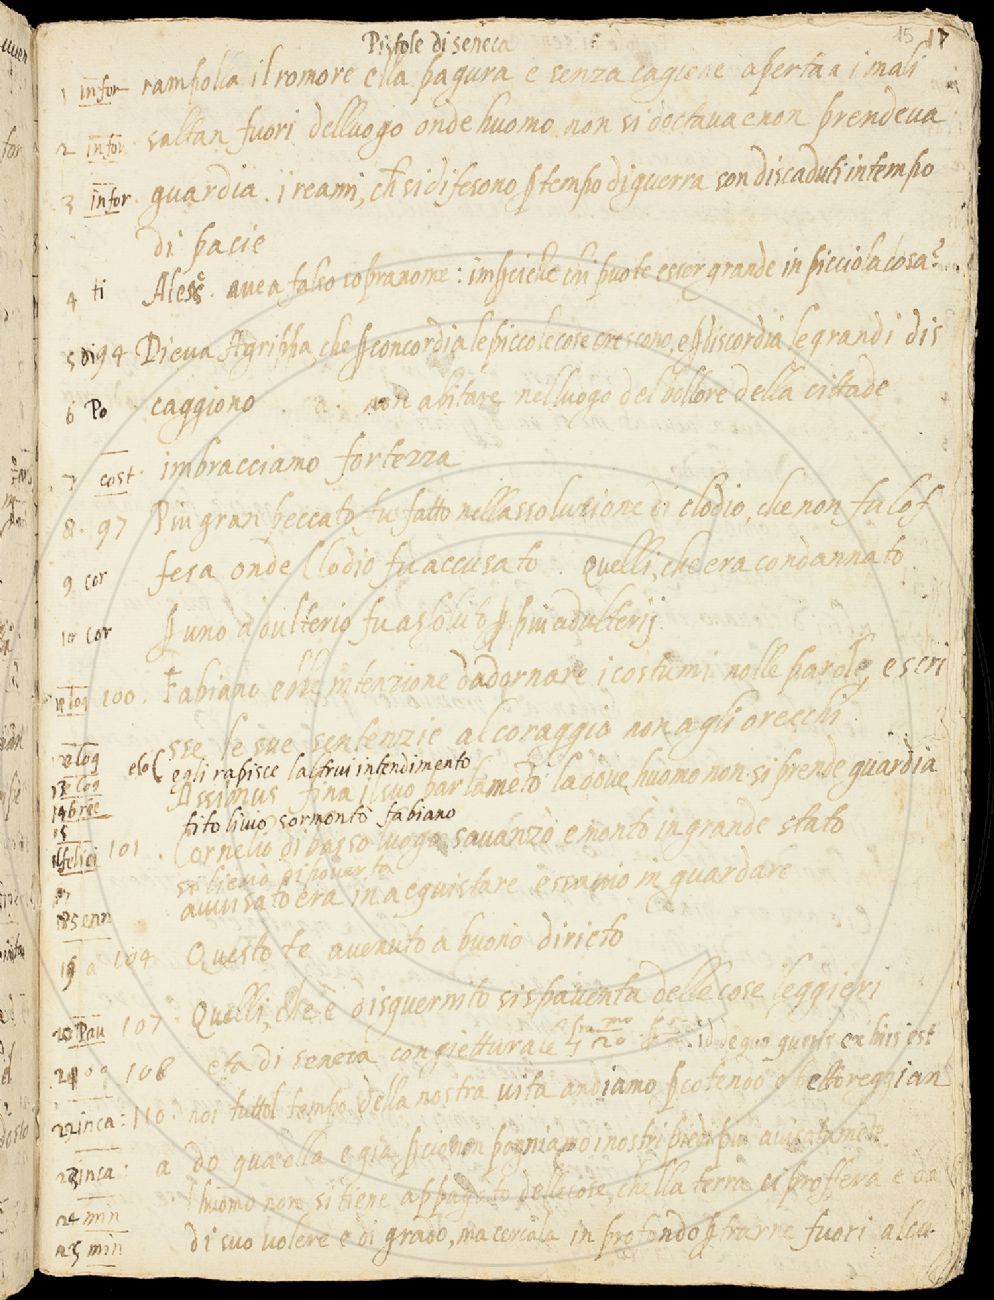 Pistole di seneca 15 17
1 infor rampolla il romore e lla pagura e senza cagione aperta a i mali
2 infor saltan fuori delluogo onde huomo non si doctava e non prendeva
3 infor guardia. i reami, ch si difesono p tempo di guerra son discaduti in tempo
di pacie
4 ti Aless. avea falso sopranome: impcioche chi puote esser grande in picciola cosa?
5 Di 94 Dieva Agrippa, che p concordia le piccole cose crescono, e p discordia le grandi dis
6 Po caggiono. a. non abitare nelluogo del bollore della cittade
7 cost imbracciamo fortezza
8. 97 Piu gran peccato fu fatto nellassoluzione di clodio, che non fu lof
9 cor fesa onde Clodio fu accusato. Quelli, che era condannato
10 cor p uno adulterio fu assoluto p piu adulterij
log 100. Fabiano ebbe intenzione dadornare i costumi nolle parole, e scri
sse le sue sentenzie al coraggio non agli orecchi
12 elog elo( egli rapisce laltrui intendimento
13 elog Assimus fina il suo parlameto la dove huomo non si prende guardia
14 bree tito livio sormontò fabiano
15
felici 101. Cornelio di basso luogo savanzò e montò in grande stato
17 si lieva di poverta
18 senn avvisato era in acquistare e ssavio in guardare
19 a 104 Questo te avenuto a buono diricto
20 Pau 107. Quelli, che è disguernito si spaventa delle cose leggieri
21 108 eta di seneca congietturale
22 inca: 110 noi tuttol tempo della nostra vita andiamo pcotendo e bettoreggian
23 inca: a do qua e lla e gia pcio non ponniamo i nostri piedi piu avisatamete
24 min lhuomo non si tiene appagato delle cose, che lla terra ci proffera e da
25 min di suo volere e di grado, ma cercala in profondo p trarne fuori alcu-